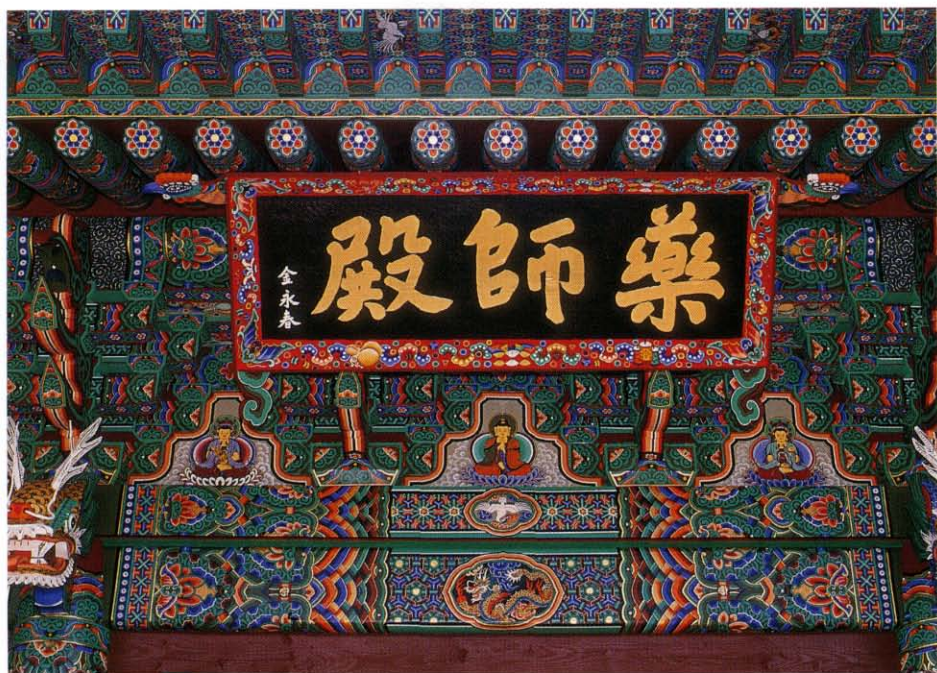 藥師殿
金永春